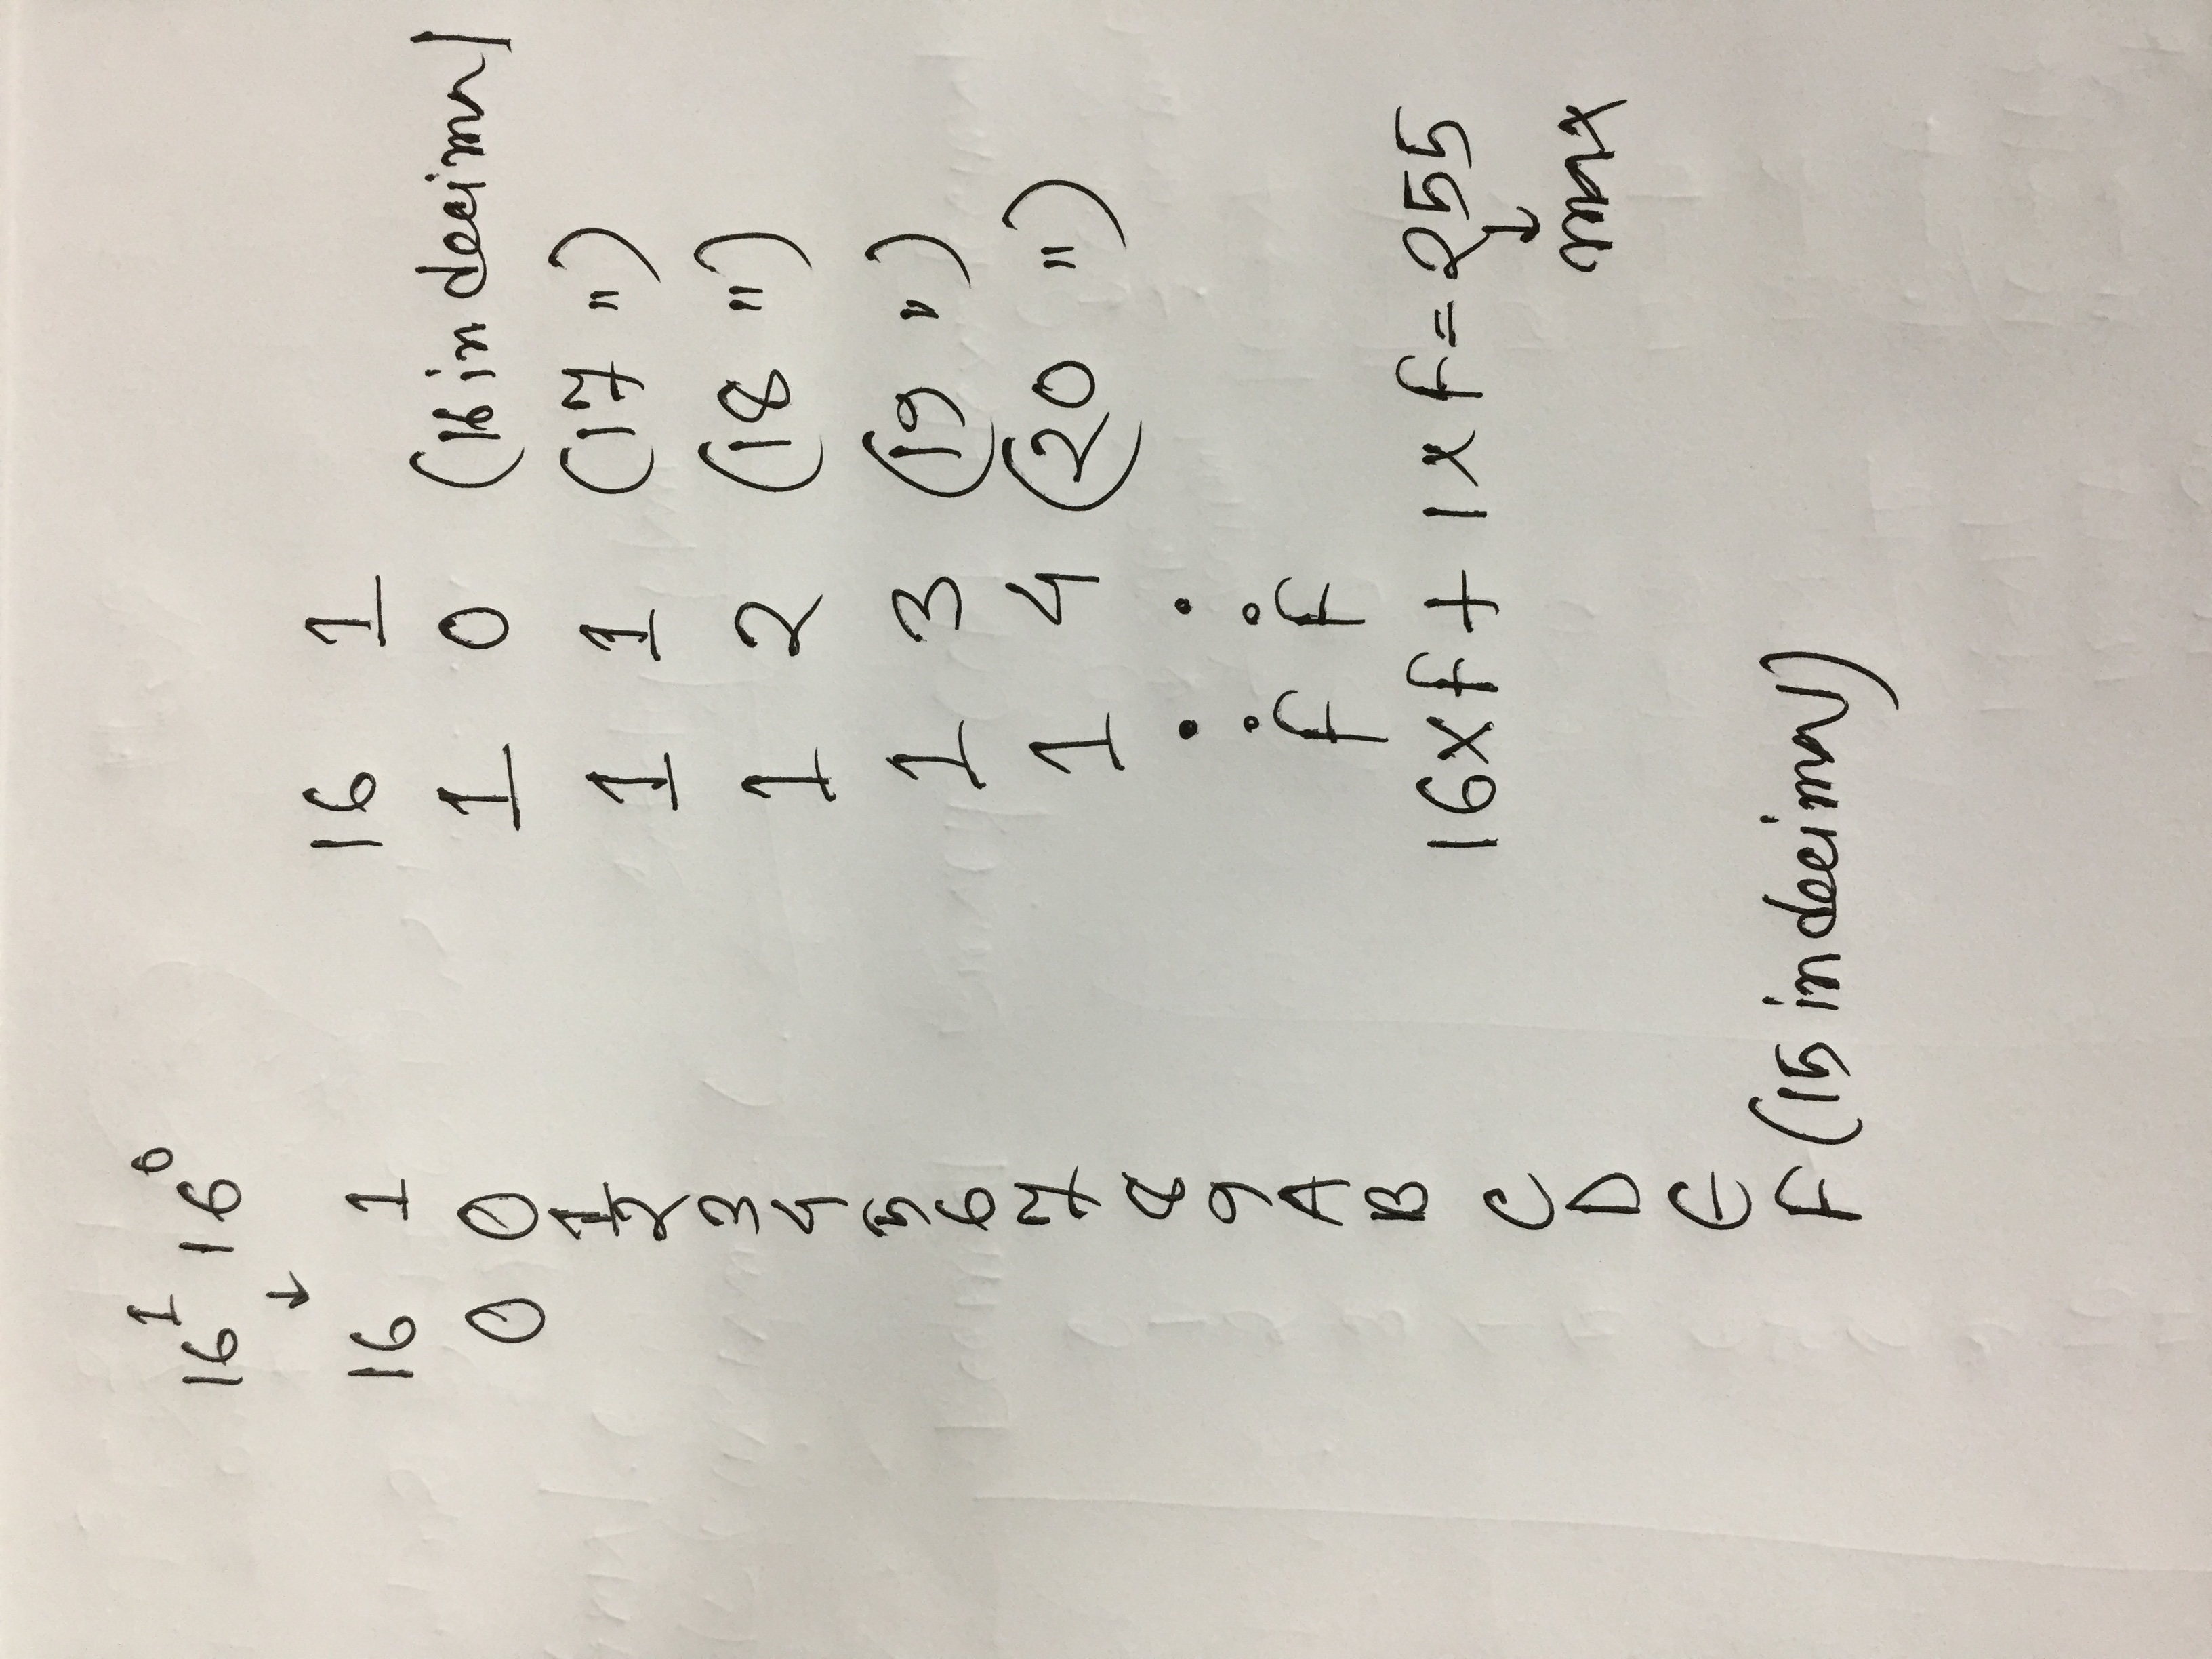 16¹ 16⁰
↓
16 1
0 0
1
2
3
4
5
6
7
8
9
A
B
C
D
E
F (15 in decimal)
16 1
1 0 (16 in decimal)
1 1 (17 ")
1 2 (18 ")
1 3 (19 ")
1 4 (20 ")
. .
. .
F F
16xF + 1xF = 255
↓
max